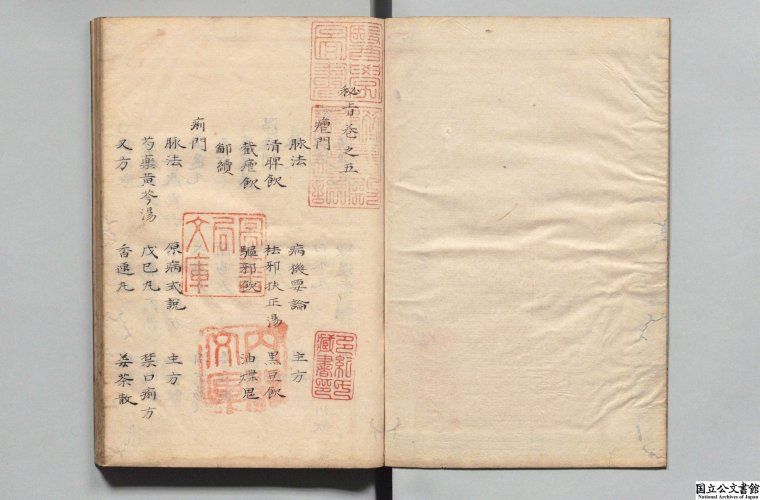 秘旨巻之五
瘧門
脉法 病機要論 主方
清脾飲 祛邪扶正湯 黒豆飲
截瘧飲 驅邪飲 油煠
鄒續
痢門
脉法 原病式說 主方
芍藥黄芩湯 戊己丸 禁口痢方
又方 香連丸 姜茶散
多紀氏
藏書印
文庫
国立公文書館
National Archives of Japan